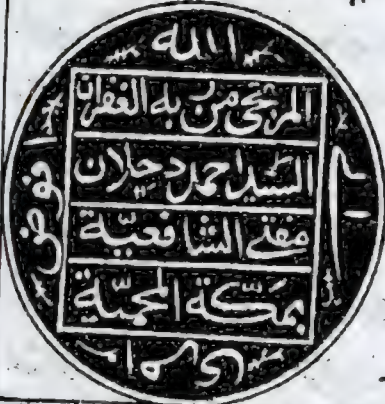 الله
المرتجى من ربه الغفران
السيد احمد دحلان
مفتي الشافعيّة
بمكّة المحميّة
افوض
امرى
الى